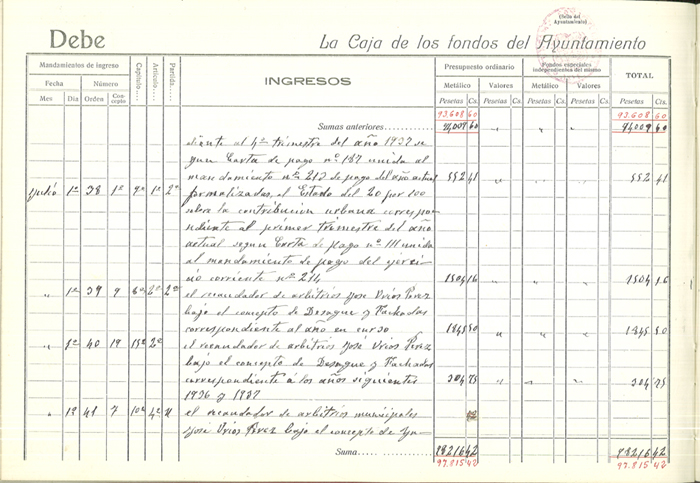 (Sello del Ayuntamiento)
Debe La Caja de los fondos del Ayuntamiento
Mandamientos de ingreso Capítulo.... Artículo.... Partida.... INGRESOS Presupuesto ordinario Fondos especiales independientes del mismo TOTAL
Fecha Número Metálico Valores Metálico Valores
Mes Día Orden Concepto Pesetas Cs. Pesetas Cs. Pesetas Cs. Pesetas Cs. Pesetas Cts.
93.608 60 93.608 60
Sumas anteriores 94009 60 " " " 94009 60
diente al 4º trimestre del año 1937 se
gun Carta de pago nº 187 unida al
mandamiento nº 213 de pago del año actual 552 41 " " " 552 41
Julio 1º 38 1º 9º 1º 2º formalizadas, el Estado del 20 por 100
sobre la contribucion urbana correspon
diente al primer trimestre del año
actual segun Carta de pago nº 111 unida
al mandamiento de pago del ejerci
cio corriente nº 214 1504 16 " " " 1504 16
" 1º 39 9 6º 2º 2º el recaudador de arbitrios José Urios Pérez
bajo el concepto de Desague y Fachadas
correspondiente al año en curso 1845 50 " " " 1845 50
" 1º 40 19 15º 2º el recaudador de arbitrios José Urios Pérez
bajo el concepto de Desague y Fachadas
correspondiente á los años siguientes 304 75 " " " 304 75
1936 y 1937
" 1º 41 7 10º 4º " el recaudador de arbitrios municipales
José Urios Pérez bajo el concepto de
Suma 98216 42 98216 42
97.815 42 97.815 42